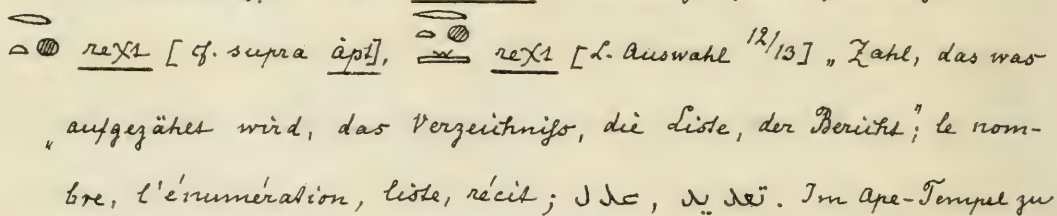 𓂋𓐍𓏏 reχt [cf. supra ȧpt], 𓂋𓐍𓏏𓏛 reχt [L. Auswahl 12/13] „Zahl, das was
„aufgezählt wird, das Verzeichniſs, die Liste, der Bericht“; le nom-
bre, l'énumération, liste, récit; عدد, تعديد. Im Ape-Tempel zu